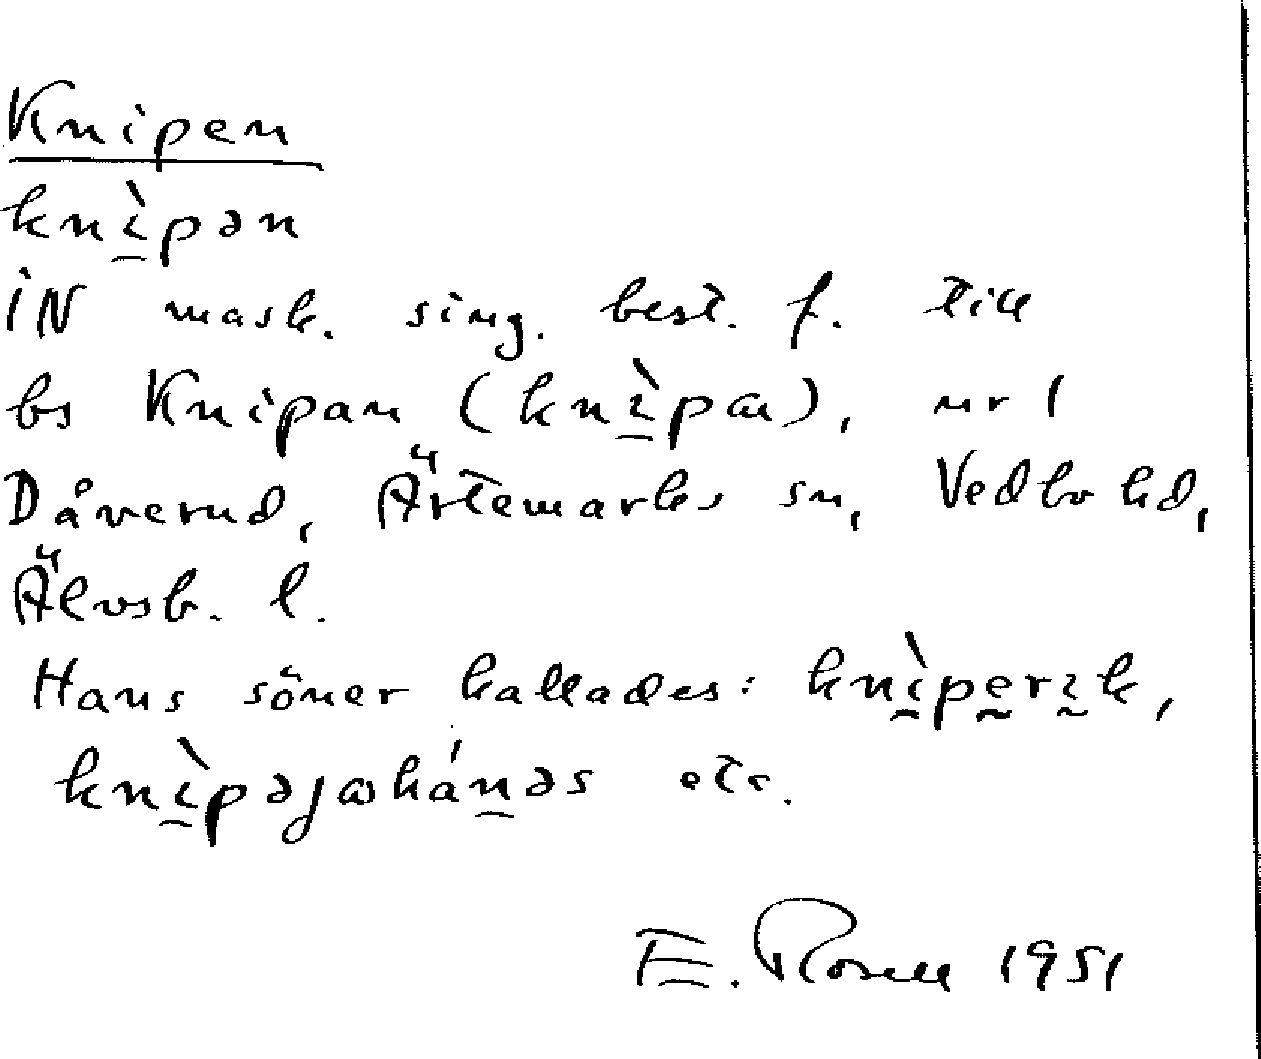 Knipen
knı̀pən
IN mask. sing. best. f. till
bs Knipan (knı̀pan), nr 1
Dåverud, Ärtemarks sn, Vedbo hd,
Älvsb. l.
Hans söner kallades: knı̀perık,
knı̀pəjωhánəs etc.
E. Rosell 1951